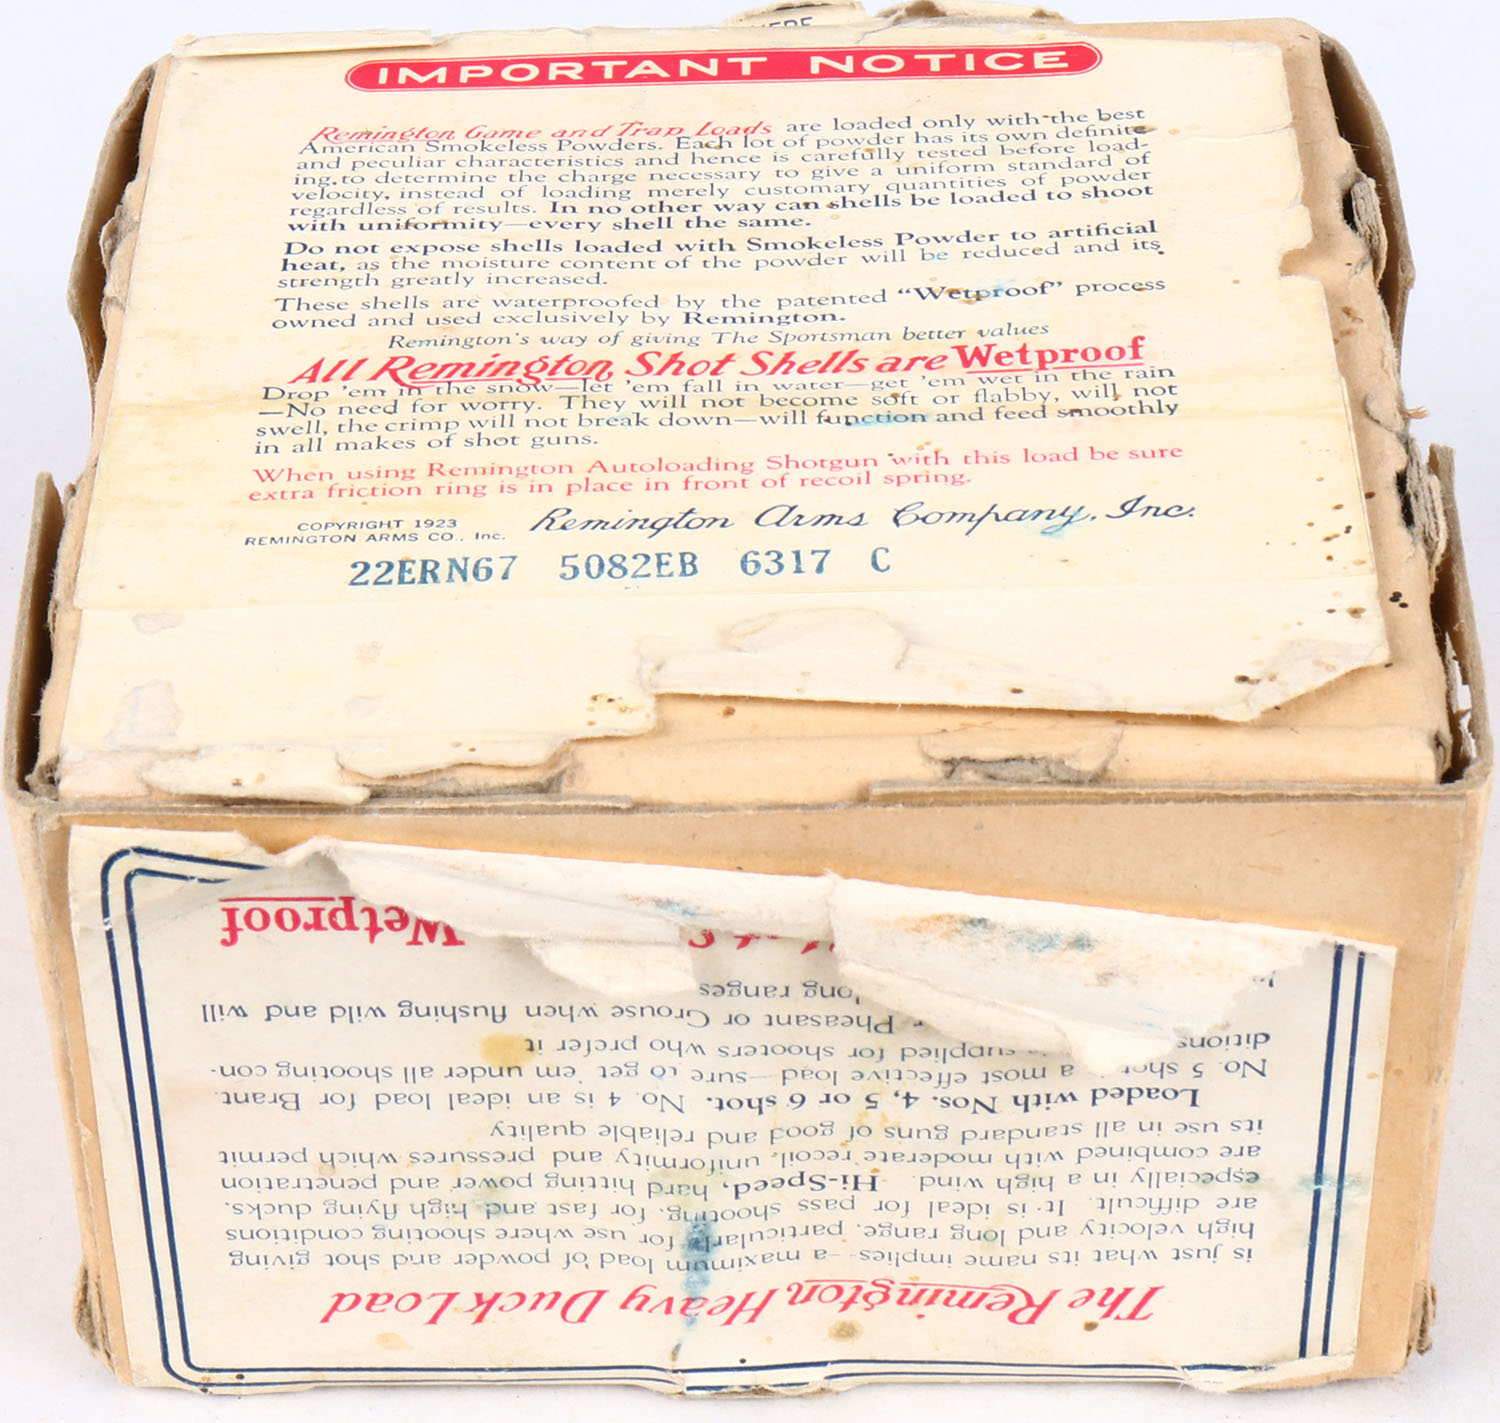 IMPORTANT NOTICE
Remington Game and Trap Loads are loaded only with the best
American Smokeless Powders. Each lot of powder has its own definite
and peculiar characteristics and hence is carefully tested before load-
ing, to determine the charge necessary to give a uniform standard of
velocity, instead of loading merely customary quantities of powder
regardless of results. In no other way can shells be loaded to shoot
with uniformity—every shell the same.
Do not expose shells loaded with Smokeless Powder to artificial
heat, as the moisture content of the powder will be reduced and its
strength greatly increased.
These shells are waterproofed by the patented "Wetproof" process
owned and used exclusively by Remington.
Remington's way of giving The Sportsman better values
All Remington Shot Shells are Wetproof
Drop 'em in the snow—let 'em fall in water—get 'em wet in the rain
—No need for worry. They will not become soft or flabby, will not
swell, the crimp will not break down—will function and feed smoothly
in all makes of shot guns.
When using Remington Autoloading Shotgun with this load be sure
extra friction ring is in place in front of recoil spring.
COPYRIGHT 1923
REMINGTON ARMS CO., Inc.
Remington Arms Company, Inc.
22ERN67 5082EB 6317 C
The Remington Heavy Duck Load
is just what its name implies—a maximum load of powder and shot giving
high velocity and long range, particularly for use where shooting conditions
are difficult. It is ideal for pass shooting, for fast and high flying ducks,
especially in a high wind. Hi-Speed, hard hitting power and penetration
are combined with moderate recoil, uniformity and pressures which permit
its use in all standard guns of good and reliable quality
Loaded with Nos. 4, 5 or 6 shot. No. 4 is an ideal load for Brant.
No. 5 shot a most effective load—sure to get 'em under all shooting con-
ditions supplied for shooters who prefer it
Pheasant or Grouse when flushing wild and will
long ranges
Wetproof